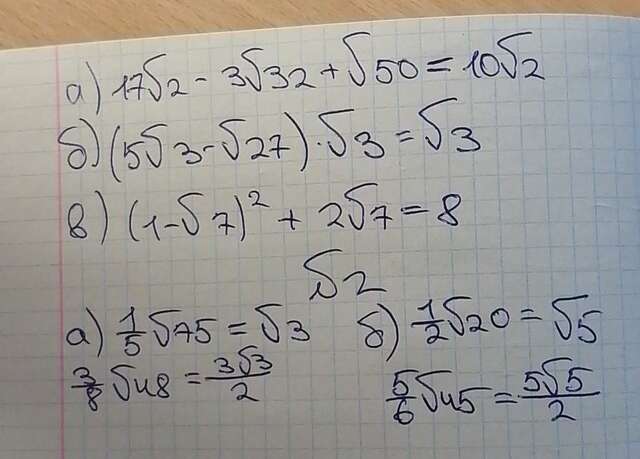 а) 17√2 - 3√32 + √50 = 10√2
б) (5√3 - √27) · √3 = √3
в) (1 - √7)² + 2√7 = 8
√2
а) 1/5 √75 = √3 б) 1/2 √20 = √5
3/8 √48 = 3√3/2
5/6 √45 = 5√5/2